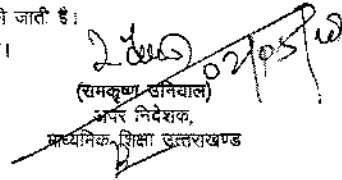 जाती है।
।
02/05/
(रामकृष्ण उनियाल)
अपर निदेशक,
माध्यमिक शिक्षा उत्तराखण्ड